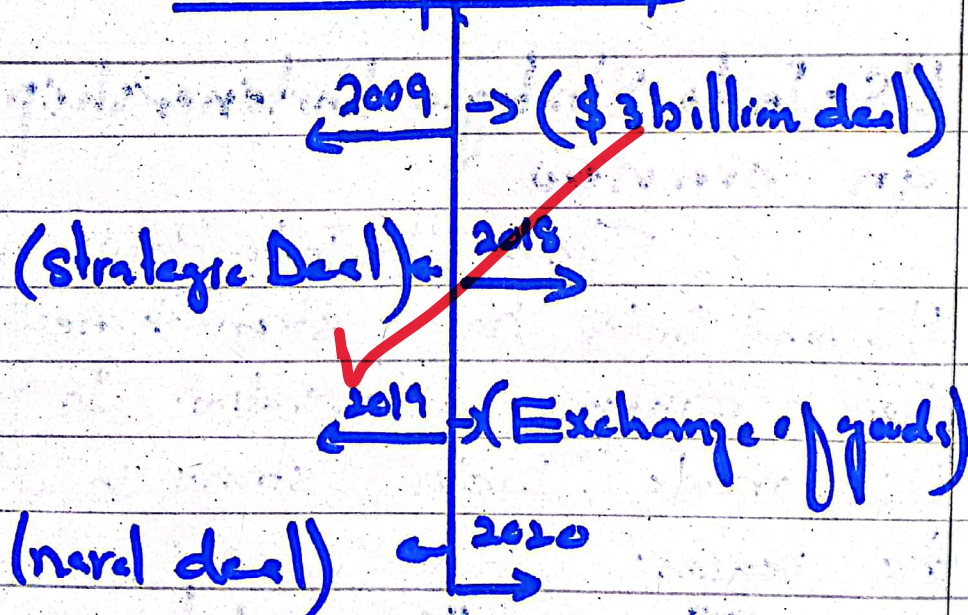 2009 → ($ 3 billion deal)
(strategic Deal) ← 2018
2019 → (Exchange of goods)
(naval deal) ← 2020